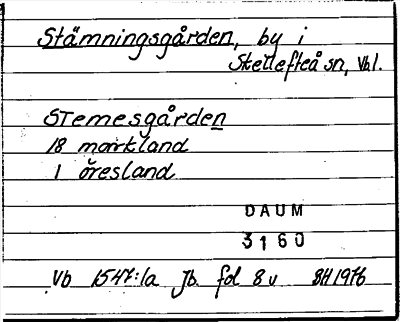 Stämningsgården, by i
Skellefteå sn, Vbl.
STemesgården
18 markland
1 öresland
DAUM
3160
Vb 1547:1a Jb. fol 8v BH 1976